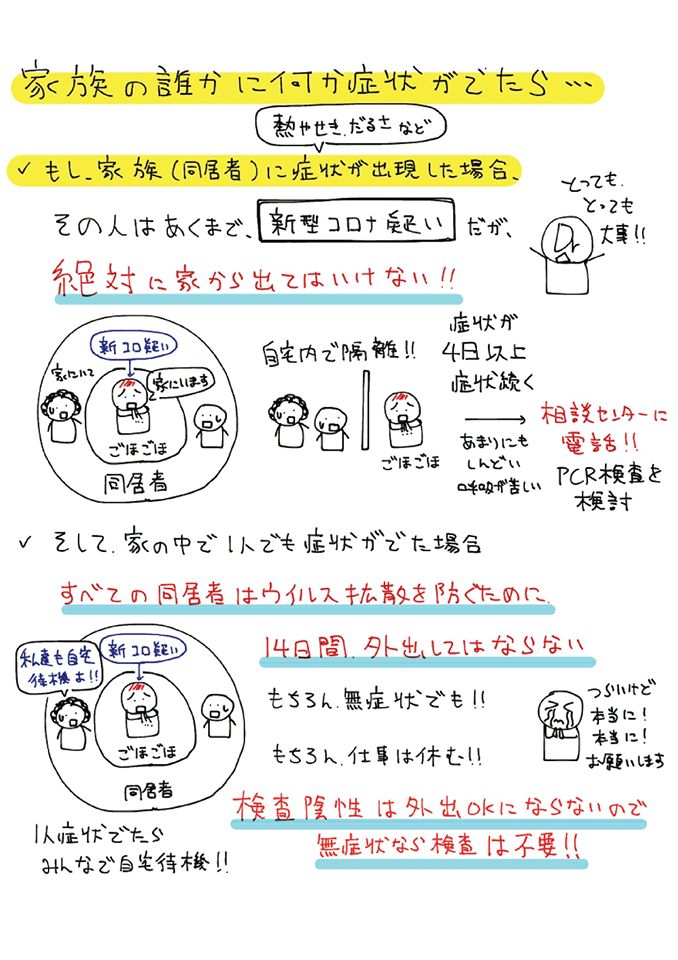 家族の誰かに何か症状がでたら…
熱やせき、だるさなど
✓ もし、家族(同居者)に症状が出現した場合、
その人はあくまで、新型コロナ疑いだが、
とっても、
とっても
大事!!
Dr
絶対に家から出てはいけない!!
新コロ疑い
家にいて
家にいます
ごほごほ
同居者
自宅内で隔離!!
ごほごほ
症状が
4日以上
症状続く
あまりにも
しんどい
呼吸が苦しい
相談センターに
電話!!
PCR検査を
検討
✓ そして、家の中で1人でも症状がでた場合
すべての同居者はウイルス拡散を防ぐために、
私達も自宅
待機よ!!
新コロ疑い
ごほごほ
同居者
14日間、外出してはならない
もちろん、無症状でも!!
もちろん、仕事は休む!!
つらいけど
本当に!
本当に!
お願いします
1人症状でたら
みんなで自宅待機!!
検査陰性は外出OKにならないので
無症状なら検査は不要!!